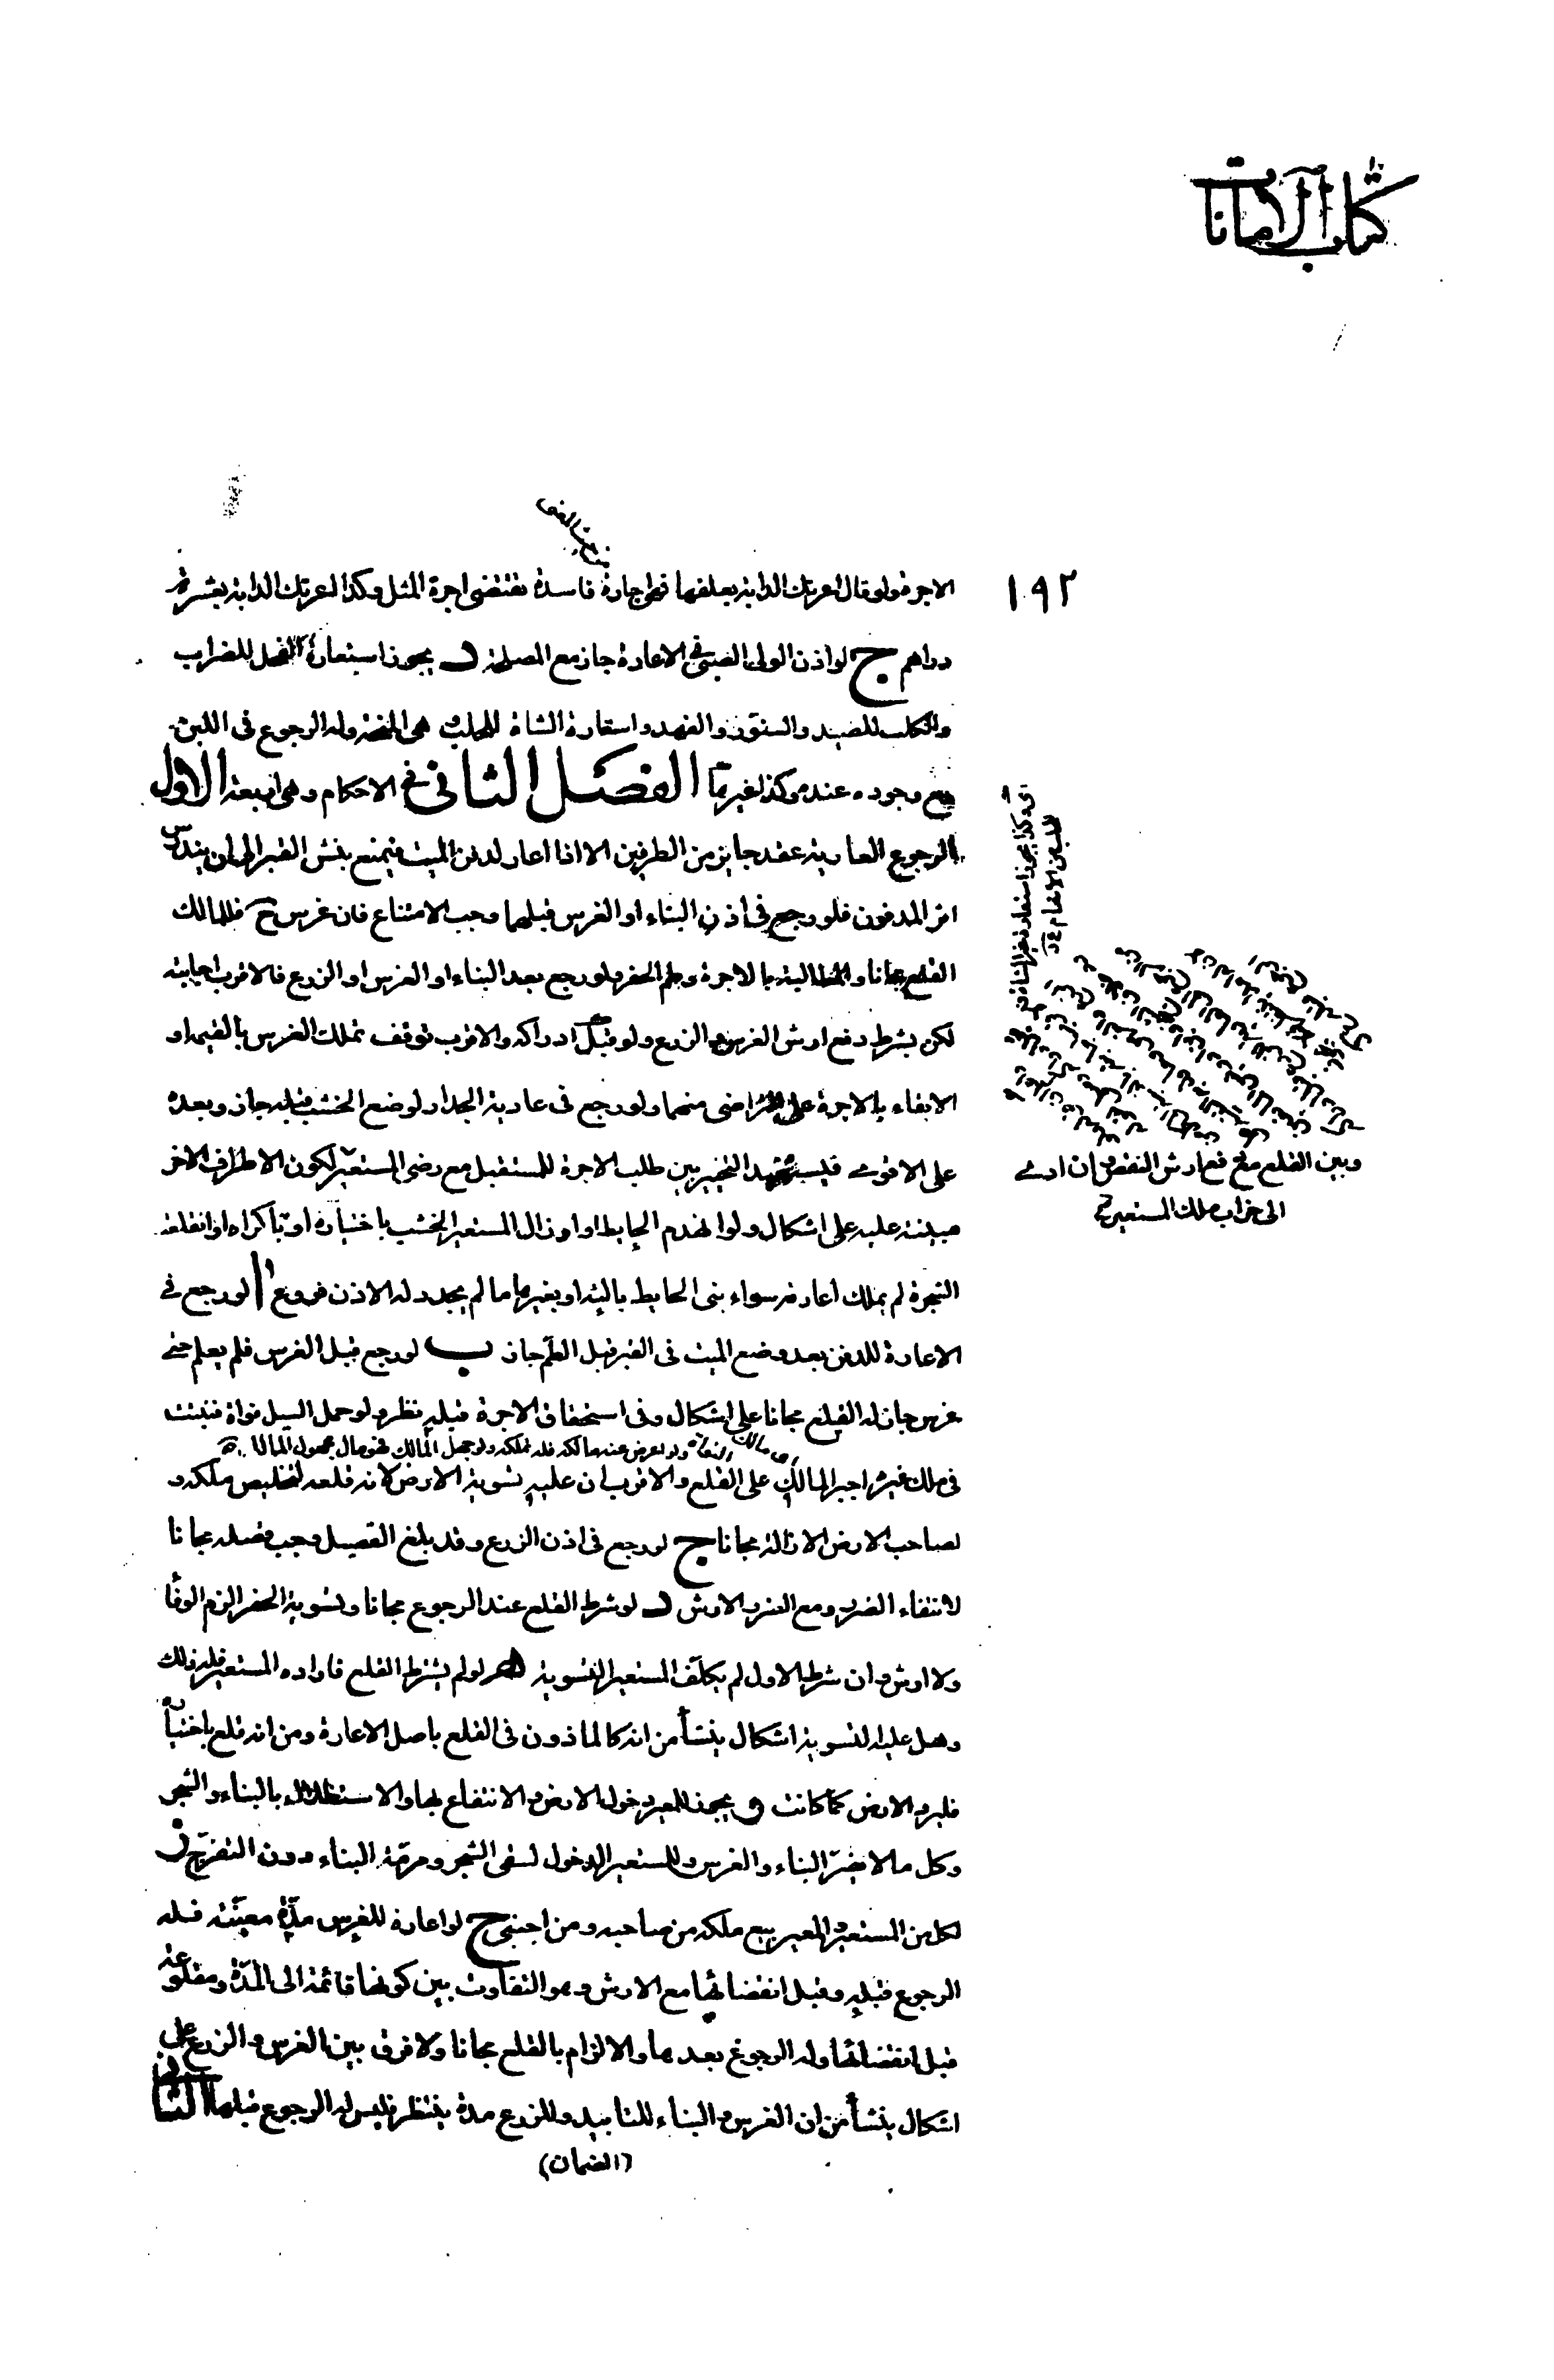 كتاب الامانات
١٩٢
الاجرة ولو قال اعرتك الدابة بعلفها فهى اجارة فاسدة تقتضى اجرة المثل وكذا اعرتك الدابة بعشرة
دراهم ج لو اذن الولى للصبى فى الاعارة جاز مع المصلحة د يجوز استعارة الفحل للضراب
والكلب للصيد والسنور والفهد واستعارة الشاة للحلب وهى المنحة وله الرجوع فى اللبن
مع وجوده عنده وكذا غيرها الفصل الثانى فى الاحكام وهى اربعة الاول
الرجوع العارية عقد جايز من الطرفين الا اذا اعار لدفن الميت فيمنع نبش القبر الى ان يندرس
اثر المدفون فلو رجع فى اذن البناء او الغرس قبلهما وجب الامتناع فان غرس ح فللمالك
القلع مجانا والمطالبة بالاجرة وطم الحفر ولو رجع بعد البناء او الغرس او الزرع فالاقرب اجابته
لكن بشرط دفع ارش الغرس والزرع ولو قبل ادراكه والاقرب توقف تملك الغرس بالقيمة او
الابقاء بالاجرة على التراضى منهما ولو رجع فى عارية الجدار لوضع الخشب قبله جاز وبعده
على الاقوى فليستفيد التخيير بين طلب الاجرة للمستقبل مع رضى المستعير لكون الاطراف الاخر
مبنية عليه على اشكال ولو انهدم الحايط او ازال المستعير الخشب باختياره او باكراه او انقلعت
الشجرة لم يملك اعارته سواء بنى الحايط بالته او بغيرها ما لم يجدد له الاذن فروع ا لو رجع فى
الاعارة للدفن بعد وضع الميت فى القبر قبل الطم جاز ب لو رجع قبل الغرس فلم يعلم حتى
غرس جاز له القلع مجانا على اشكال وفى استحقاق الاجرة قبله نظر ولو حمل السيل نواة فنبتت
اى مالك النواة ولو اعرض عنه مالكه فله تملكه ولو جهل المالك فهو مال مجهول المالك
فى ملك غيره اجبر المالك على القلع والاقرب ان عليه تسوية الارض لانه قلعه لتخليص ملكه و
لصاحب الارض الازالة مجانا ج لو رجع فى اذن الزرع وقد بلغ القصيل وجب قصله مجانا
لانتفاء الضرر ومع الضرر الارش د لو شرط القلع عند الرجوع مجانا وتسوية الحفر الزم الوفا
ولا ارش وان شرط الاول لم يكلف المستعير التسوية ه لو لم يشترط القلع فاراده المستعير فله ذلك
وهل عليه التسوية اشكال ينشأ من انه كالماذون فى القلع باصل الاعارة ومن انه قلع باختياره
فليرد الارض كما كانت و يجوز للمعير دخول الارض والانتفاع بها والاستظلال بالبناء والشجر
وكل ما لا يضر البناء والغرس وللمستعير الدخول لسقى الشجر ومرمة البناء دون التفرج ز
لكل من المستعير والمعير بيع ملكه من صاحبه ومن اجنبى ح لو اعاره للغرس مدة معينة فله
الرجوع قبله وقبل انقضائها مع الارش وهو التفاوت بين كونها قائمة الى المدة ومقلوعة
قبل انقضائها وله الرجوع بعدها والالزام بالقلع مجانا ولا فرق بين الغرس والزرع على
اشكال ينشأ من ان الغرس والبناء للتابيد وللزرع مدة ينتظر فليس له الرجوع قبلها الثانى
(الضمان)
وكذا يجوز استعارة غير الشاة
للبن من الانعام
وبين القلع مع دفع ارش النقص وان ادى
الى خراب ملك المستعير